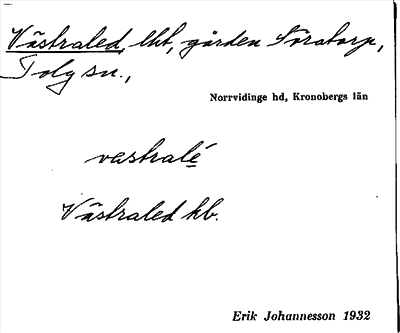 Västraled, lht, gården Toratorp,
Tolg sn.,
Norrvidinge hd, Kronobergs län
vastralé
Västraled hb.
Erik Johannesson 1932